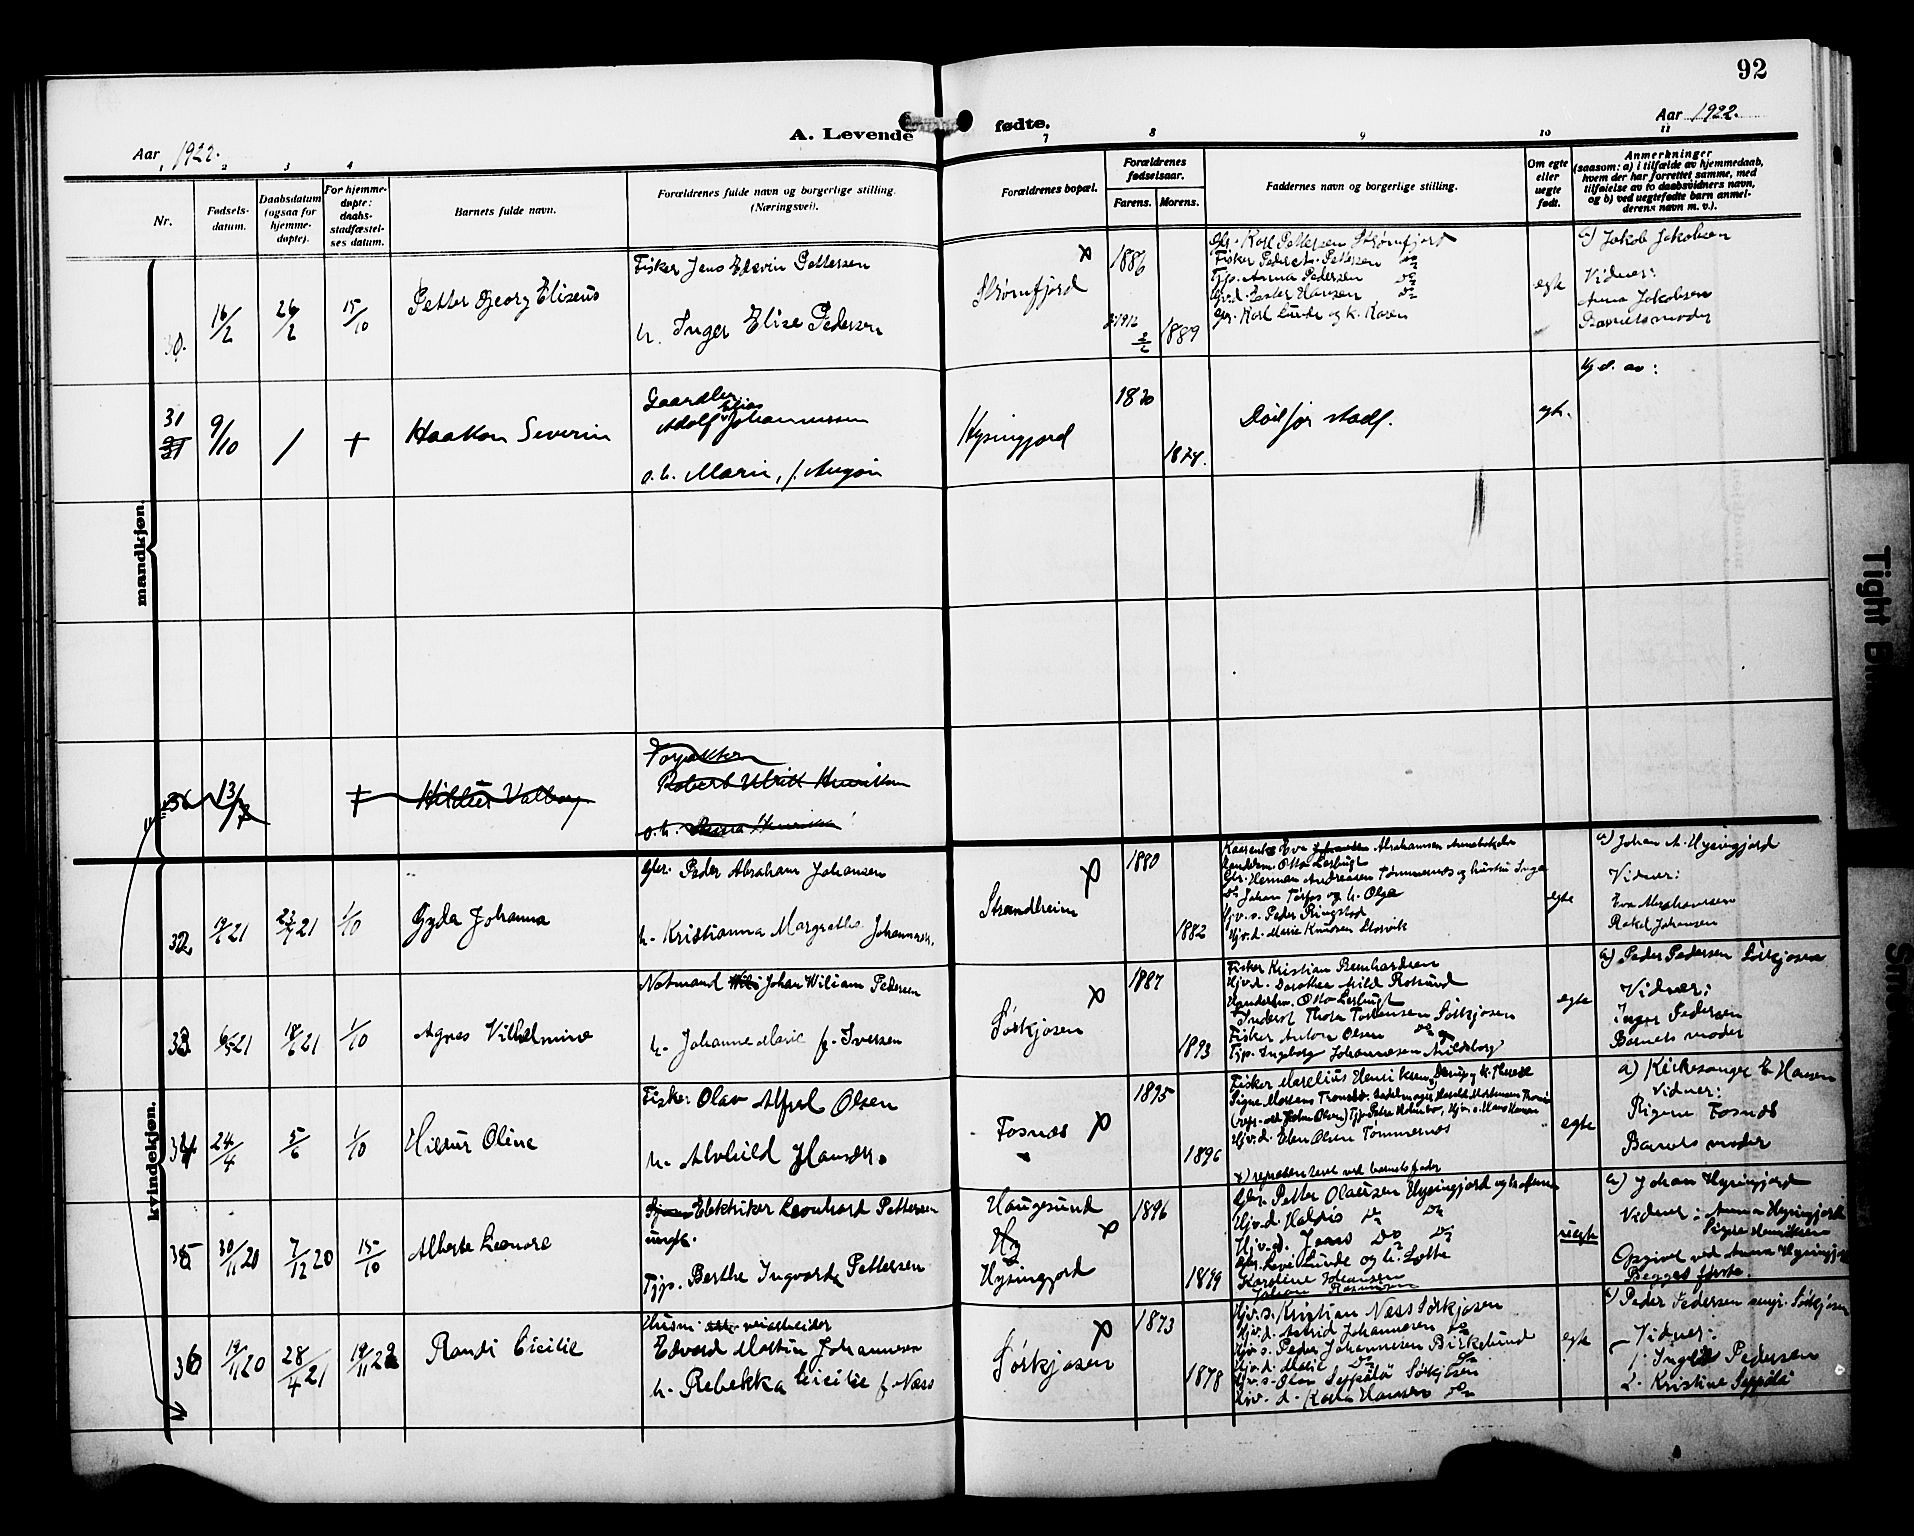 92
A. Levende fødte.
Aar 1922.
Aar 1922.
1 2 3 4 7 8 9 10 11
Nr.
Fødsels-
datum.
Daabsdatum
(ogsaa for
hjemme-
døpte).
For hjemme-
døpte:
daabs-
stadfæstel-
ses datum.
Barnets fulde navn.
Forældrenes fulde navn og borgerlige stilling.
(Næringsvei).
Forældrenes bopæl.
Forældrenes
fødselsaar.
Farens. Morens.
Faddernes navn og borgerlige stilling.
Om egte
eller
uegte
født.
Anmerkninger
(saasom: a) i tilfælde av hjemmedaab,
hvem der har forrettet samme, med
tilføielse av to daabsvidners navn,
og b) ved uegtefødte barn anmel-
derens navn m. v.).
mandkjøn.
30. 16/2 26/2 15/10
Petter Georg Elizeus
Fisker Jens Edevin Pettersen
h. Inger Elise Pedersen
Strømfjord
1886
1889
Gbr. Karl Pettersen Strømfjord
Fisker Peder A. Pettersen do
Tjp. Anna Pedersen do
Gv.d. Peder Hansen do
Gbr. Karl Lunde og h. Karen
egte
a) Jakob Jakobsen
Vidner:
Anna Jakobsen
Barnets moder
31 9/10 / +
Haakon Severin
Gaardbr.
Adolf Elias Johannessen
o. h. Marie, f.
Hysingjord
1870
1874.
Död før stadf.
egte.
Hj.d. av:
36 13/7 +
Forpakter
Robert Ulrik Henriksen
o. h. Anna Henriksen
kvindekjøn.
32 21 21 1/10
Gyda Johanna
Gbr. Peder Abraham Johansen
h. Kristianna Margrethe Johannesdr.
Strandheim
1880
1882
Otto Lerbugt
Gbr. Herman Andreasen Tømmernes og hustru Inga
Johan Torfos og h. Olga
Ujv. s. Peder Ringstad
Ujv. d. Marie Knudsen Storvik
egte
a) Johan A. Hysingjord
Vidner:
Eva Abrahamsen
Rakel Johansen
33 6/5 21 18/6 21 1/10
Agnes Vilhelmine
Notmand Johan Wiliam Pedersen
h. Johanne Marie f. Iversen
Sørkjosen
1887
1893
Fisker Kristian Bernhardsen
Ujv. d. Dorothea Mild Rotsund
Handelsm. Otto Lerbugt
Thora Torstensen Sørkjosen
Fisker Anton Olsen do og
Tjp. Ingeborg Johannesen Mildeberg
egte
a) Peder Pedersen Sørkjosen
Vidner:
Inger Pedersen
Barnets moder
34 24/4 5/6 1/10
Hildur Oline
Fisker Olav Alfred Olsen
h. Alvhild Hansdr.
Fosnæs
1895
1896
Fisker Marelius Henriksen og h. Therese
Signe Mortens Tromsø.
Ujv. d. Eben Olsen Tømmernes
x) repræsenteret ved barnets fader
egte
a) Kirkesanger E. Hansen
Vidner:
Rigmo Fosnæs
Barnets moder
35 30/11 20 7/12 20 15/10
Alberte Leonore
Elektriker Leonhard Pettersen
ungk.
Tjp. Berthe Ingvarda Pettersen
Haugesund
Hysingjord
1896
1899
Gbr. Petter Olaussen Hysingjord og h.
Ujv. d. Haldis do do
Ujv. d. Jens Do Do
Gbr. Lunde og h. Lotte
Karoline Johansen
Johan Rasmussen
uegte
a) Johan Hysingjord
Vidner: Anna Hysingjord
Signe Henriksen
Opgivet ved Anna Hysingjord
Begges første.
36 19/11 20 28/4 21 19/11 22
Randi Cicilie
Husm. veiarbeider
Edvard Martin Johannesen
h. Rebekka Cicilie f. Næss
Sørkjosen
1873
1878
Ujv. s. Kristian Næss Sørkjosen
Ujv. d. Astrid Johannesen do
Ujv. s. Peder Johannesen Birkelund
Ujv. d. Marie do do
Ujv. s. Olav Seppälä Sørkjosen
Ujv. d. Karla Hansen do
egte
a) Peder Pedersen senjr. Sørkjosen
Vidner:
1. Inga Pedersen
2. Kristine Seppälä
Tight